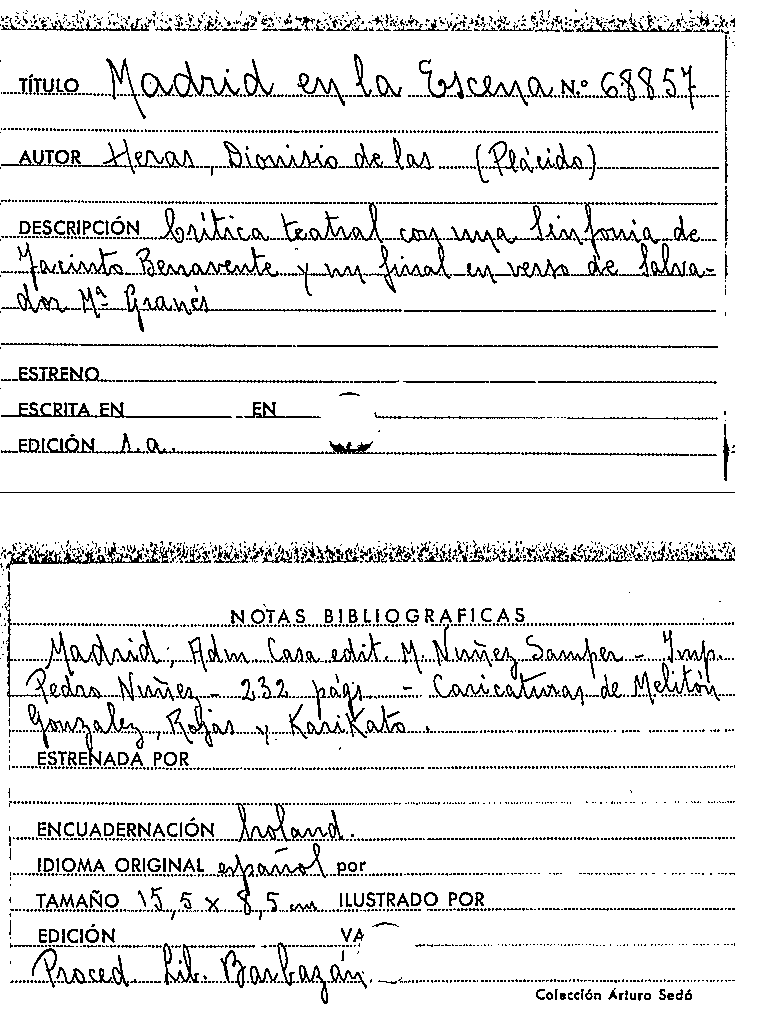 TÍTULO Madrid en la Escena N.º 68857
AUTOR Heras, Dionisio de las (Plácido)
DESCRIPCIÓN Crítica teatral con una Sinfonia de
Jacinto Benavente y un final en verso de Salva-
dor Mª Granés
ESTRENO
ESCRITA EN EN
EDICIÓN s.a.
NOTAS BIBLIOGRAFICAS
Madrid; Adm Casa edit. M. Nuñez Samper - Imp.
Pedro Nuñez - 232 págs. - Caricaturas de Melitón
Gonzalez, Rojas y KariKato.
ESTRENADA POR
ENCUADERNACIÓN holand.
IDIOMA ORIGINAL español por
TAMAÑO 15,5 x 8,5 cm ILUSTRADO POR
EDICIÓN VA
Proced. Lib. Barbazán.
Colección Arturo Sedó